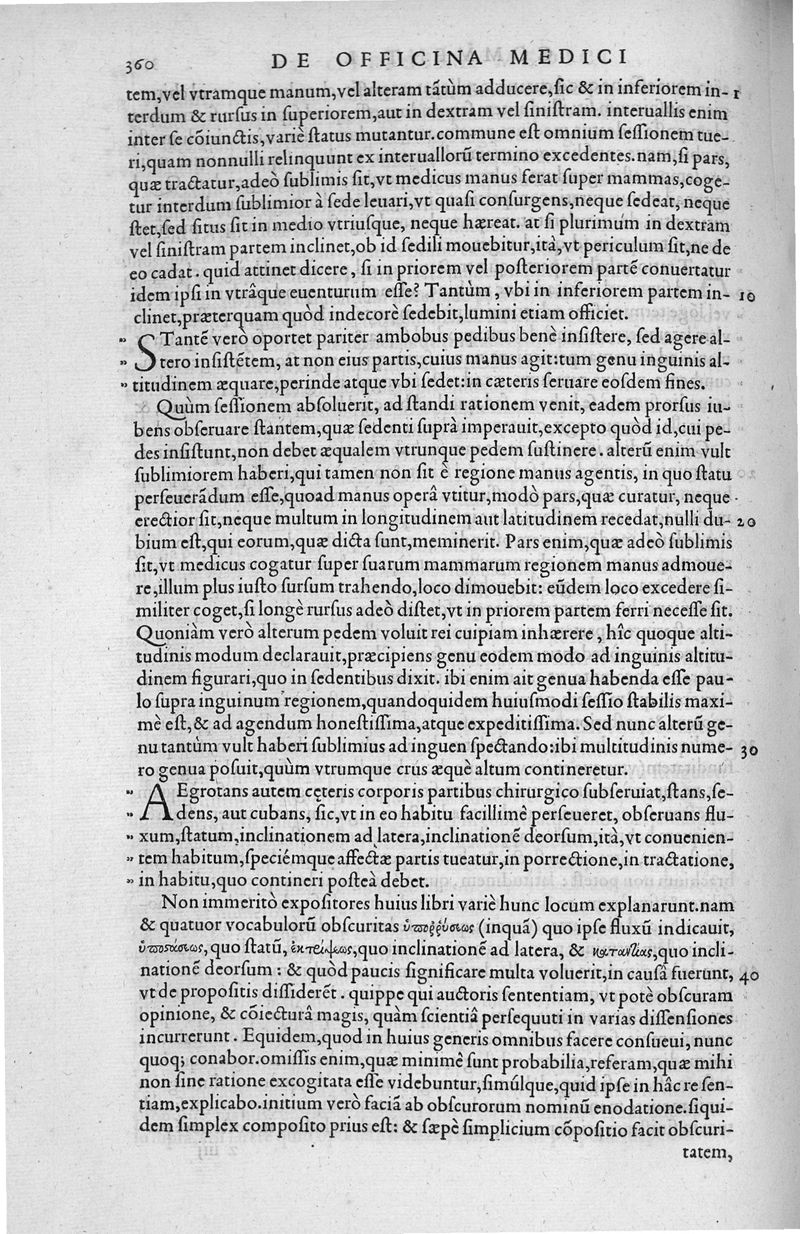 360 DE OFFICINA MEDICI
tem,vel vtramque manum,vel alteram tãtùm adducere,ſic & in inferiorem in- 1
terdum & rurſus in ſuperiorem,aut in dextram vel ſiniſtram. interuallis enim
inter ſe cõiunctis,variè ſtatus mutantur.commune eſt omnium ſeſſionem tue-
ri,quam nonnulli relinquunt ex interuallorũ termino excedentes.nam,ſi pars,
quæ tractatur,adeò ſublimis ſit,vt medicus manus ferat ſuper mammas,coge-
tur interdum ſublimior à ſede leuari,vt quaſi conſurgens,neque ſedeat, neque
ſtet,ſed ſitus ſit in medio vtriuſque, neque hæreat. at ſi plurimùm in dextram
vel ſiniſtram partem inclinet,ob id ſedili mouebitur,ità,vt periculum ſit,ne de
eo cadat. quid attinet dicere, ſi in priorem vel poſteriorem partẽ conuertatur
idem ipſi in vtrâque euenturum eſſe? Tantùm, vbi in inferiorem partem in- 10
clinet,præterquam quòd indecorè ſedebit,lumini etiam officiet.
" STantẽ verò oportet pariter ambobus pedibus benè inſiſtere, ſed agere al-
" tero inſiſtẽtem, at non eius partis,cuius manus agit:tum genu inguinis al-
" titudinem æquare,perinde atque vbi ſedet:in cæteris ſeruare eoſdem fines.
Quùm ſeſſionem abſoluerit, ad ſtandi rationem venit, eadem prorſus iu-
bens obſeruare ſtantem,quæ ſedenti ſuprà imperauit,excepto quòd id,cui pe-
des inſiſtunt,non debet æqualem vtrunque pedem ſuſtinere. alterũ enim vult
ſublimiorem haberi,qui tamen non ſit è regione manus agentis, in quo ſtatu
perſeuerãdum eſſe,quoad manus operâ vtitur,modò pars,quæ curatur, neque
erectior ſit,neque multum in longitudinem aut latitudinem recedat,nulli du- 20
bium eſt,qui eorum,quæ dicta ſunt,meminerit. Pars enim,quæ adeò ſublimis
ſit,vt medicus cogatur ſuper ſuarum mammarum regionem manus admoue-
re,illum plus iuſto ſurſum trahendo,loco dimouebit: eũdem loco excedere ſi-
militer coget,ſi longè rurſus adeò diſtet,vt in priorem partem ferri neceſſe ſit.
Quoniàm verò alterum pedem voluit rei cuipiam inhærere, hîc quoque alti-
tudinis modum declarauit,præcipiens genu eodem modo ad inguinis altitu-
dinem figurari,quo in ſedentibus dixit. ibi enim ait genua habenda eſſe pau-
lo ſupra inguinum regionem,quandoquidem huiuſmodi ſeſſio ſtabilis maxi-
mè eſt,& ad agendum honeſtiſſima,atque expeditiſſima. Sed nunc alterũ ge-
nu tantùm vult haberi ſublimius ad inguen ſpectando:ibi multitudinis nume- 30
ro genua poſuit,quùm vtrumque crus æquè altum contineretur.
" AEgrotans autem cęteris corporis partibus chirurgico ſubſeruiat,ſtans,ſe-
" dens, aut cubans, ſic,vt in eo habitu facillimè perſeueret, obſeruans flu-
" xum,ſtatum,inclinationem ad latera,inclinationẽ deorſum,ità,vt conuenien-
" tem habitum,ſpeciémque affectæ partis tueatur,in porrectione,in tractatione,
" in habitu,quo contineri poſteà debet.
Non immeritò expoſitores huius libri variè hunc locum explanarunt.nam
& quatuor vocabulorũ obſcuritas ὑπορῥύσιως (inquã) quo ipſe fluxũ indicauit,
ὑποστάσιως, quo ſtatũ, ἐκτείψεως,quo inclinationẽ ad latera, & κατανθίας,quo incli-
nationẽ deorſum : & quòd paucis ſignificare multa voluerit,in cauſâ fuerunt, 40
vt de propoſitis diſſiderẽt. quippe qui auctoris ſententiam, vt potè obſcuram
opinione, & cõiecturâ magis, quàm ſcientiâ perſequuti in varias diſſenſiones
incurrerunt. Equidem,quod in huius generis omnibus facere conſueui, nunc
quoq; conabor.omiſſis enim,quæ minimè ſunt probabilia,referam,quæ mihi
non ſine ratione excogitata eſſe videbuntur,ſimúlque,quid ipſe in hâc re ſen-
tiam,explicabo.initium verò faciã ab obſcurorum nominũ enodatione.ſiqui-
dem ſimplex compoſito prius eſt: & ſæpè ſimplicium cõpoſitio facit obſcuri-
tatem,